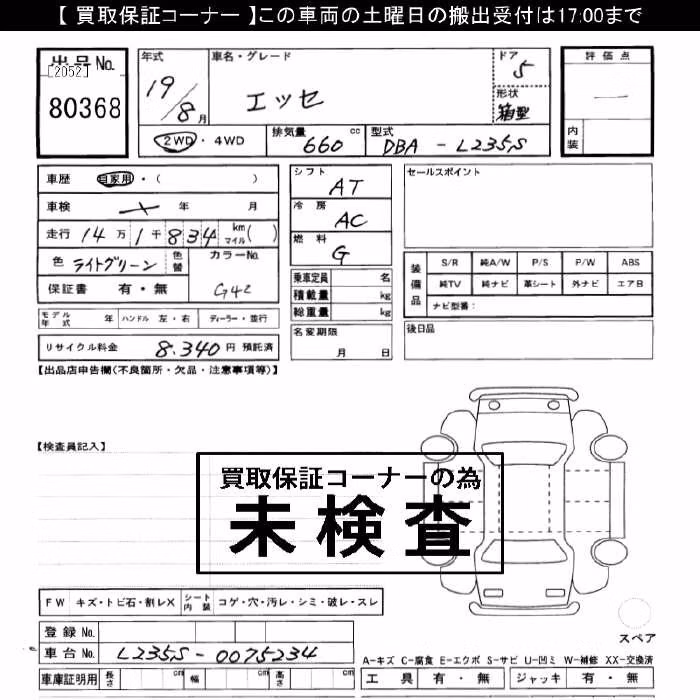 【 買取保証コーナー 】この車両の土曜日の搬出受付は17:00まで
出品No.
[2052]
80368
年式 19/8月
車名・グレード エッセ
ドア 5
形状 箱型
評価点 —
内装
2WD・4WD
排気量 660 cc
型式 DBA - L235S
車歴 自家用・( )
車検 年 月
走行 14万1千834 km マイル( )
色 ライトグリーン 色替
カラーNo. G42
保証書 有・無
モデル年式 年 ハンドル 左・右 ディーラー・並行
リサイクル料金 8.340 円 預託済
シフト AT
冷房 AC
燃料 G
乗車定員 名
積載量 kg
総重量 kg
名変期限 月 日
セールスポイント
装備品
S/R 純A/W P/S P/W ABS
純TV 純ナビ 革シート 外ナビ エアB
ナビ型番:
後日品
【出品店申告欄(不良箇所・欠品・注意事項等)】
【検査員記入】
買取保証コーナーの為
未検査
FW キズ・トビ石・割レX シート内装 コゲ・穴・汚レ・シミ・破レ・スレ
スペア
登録 No.
車台 No. L235S-0075234
車庫証明用 長さ cm 幅 cm 高さ cm
A-キズ C-腐食 E-エクボ S-サビ U-凹ミ W-補修 XX-交換済
工具 有・無 ジャッキ 有・無